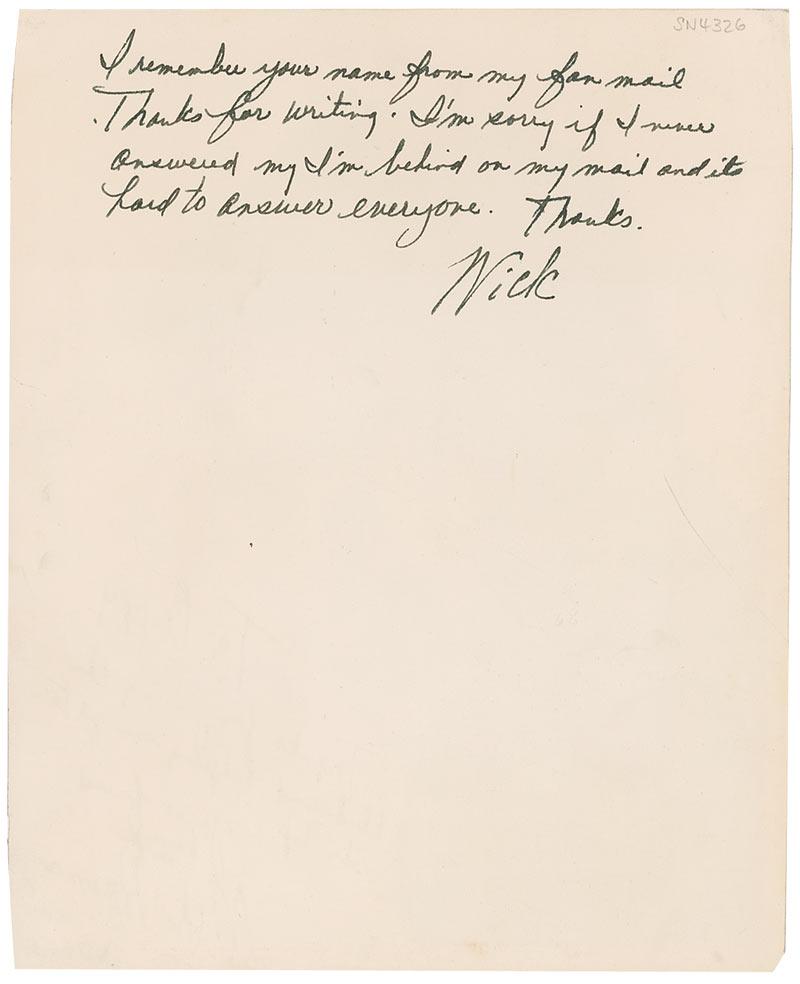 SN4326
I remember your name from my fan mail
. Thanks for writing. I'm sorry if I never
answered my I'm behind on my mail and its
hard to answer everyone. Thanks.
Nick